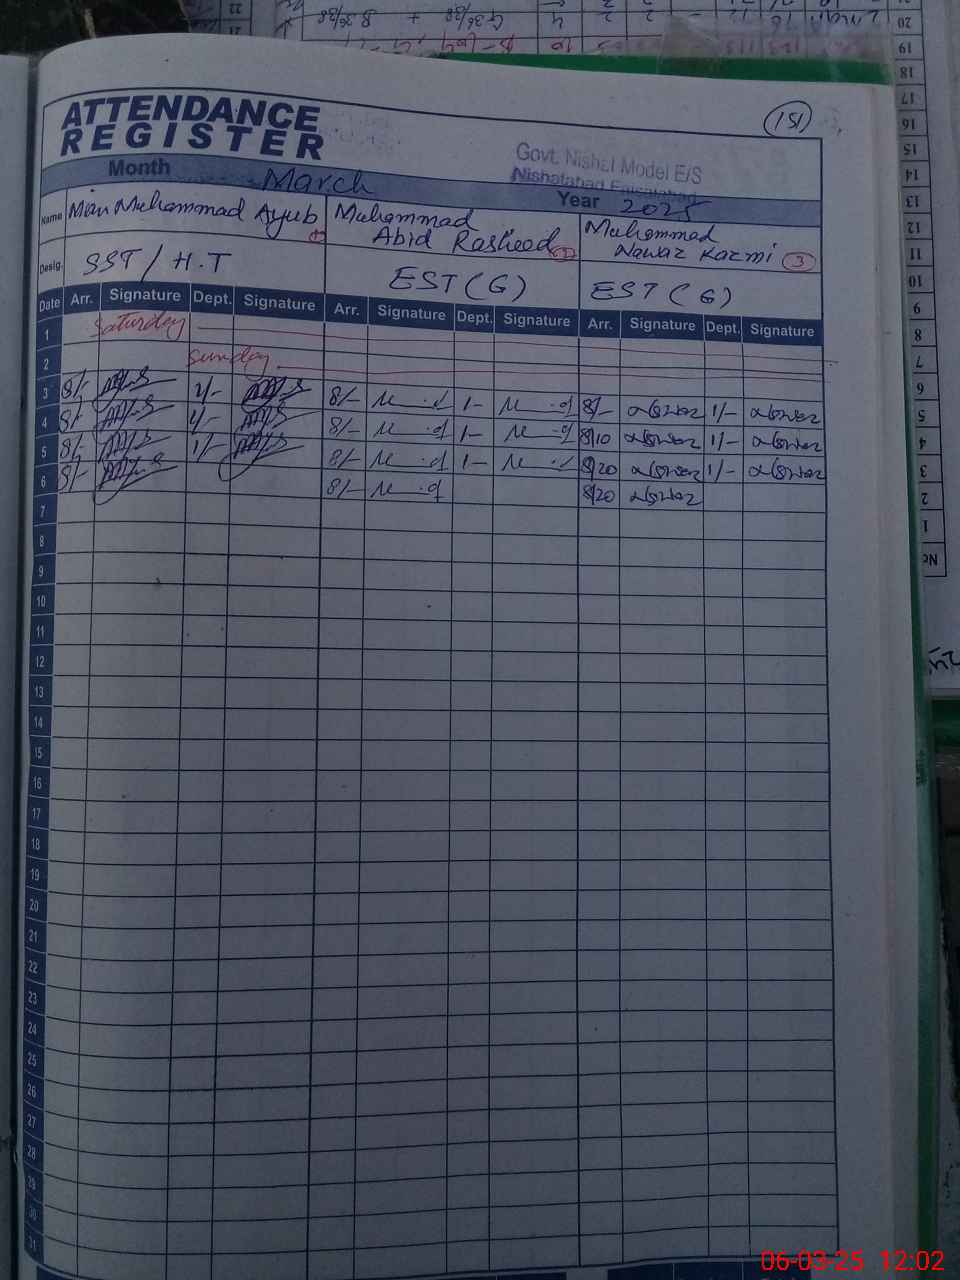 151
ATTENDANCE
REGISTER
Govt. Nishat Model E/S
Nishatabad Faisalabad
Month March Year 2025
Name Mian Muhammad Ayub 1 Muhammad Abid Rasheed Muhammad Nawaz Kazmi 3
Desig. SST / H.T EST (G) EST (G)
Date Arr. Signature Dept. Signature Arr. Signature Dept. Signature Arr. Signature Dept. Signature
1 Saturday
2 Sunday
3 8/- 1/- 8/- 1- 8/- 1/-
4 8/- 1/- 8/- 1- 8/10 1/-
5 8/- 1/- 8/- 1- 8/20 1/-
6 8/- 8/- 8/20
7
8
9
10
11
12
13
14
15
16
17
18
19
20
21
22
23
24
25
26
27
28
29
30
31
06-03-25 12:02